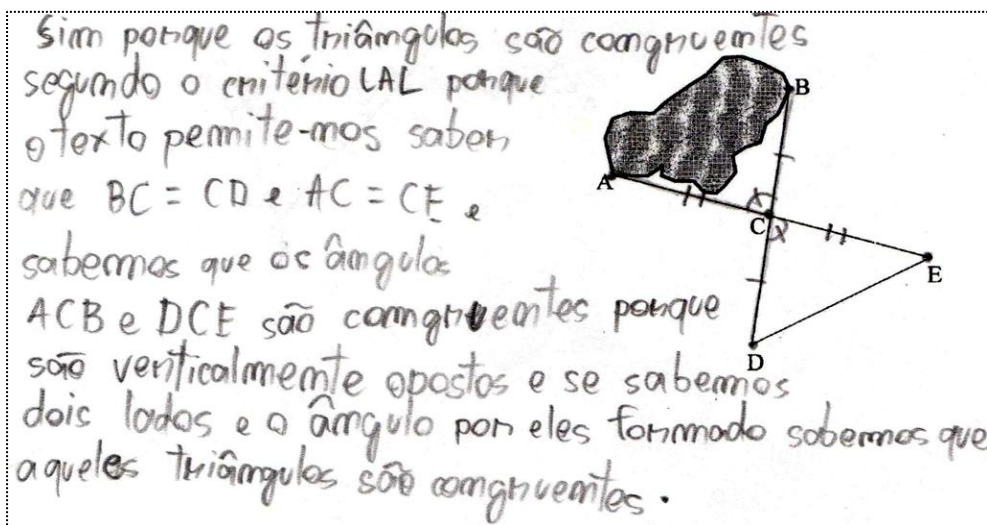 Sim porque os triângulos são congruentes
segundo o critério LAL porque
o texto permite-nos saber
que BC = CD e AC = CE e
sabemos que os ângulos
ACB e DCE são congruentes porque
são verticalmente opostos e se sabemos
dois lados e o ângulo por eles formado sabemos que
aqueles triângulos são congruentes.
B
A
C
E
D